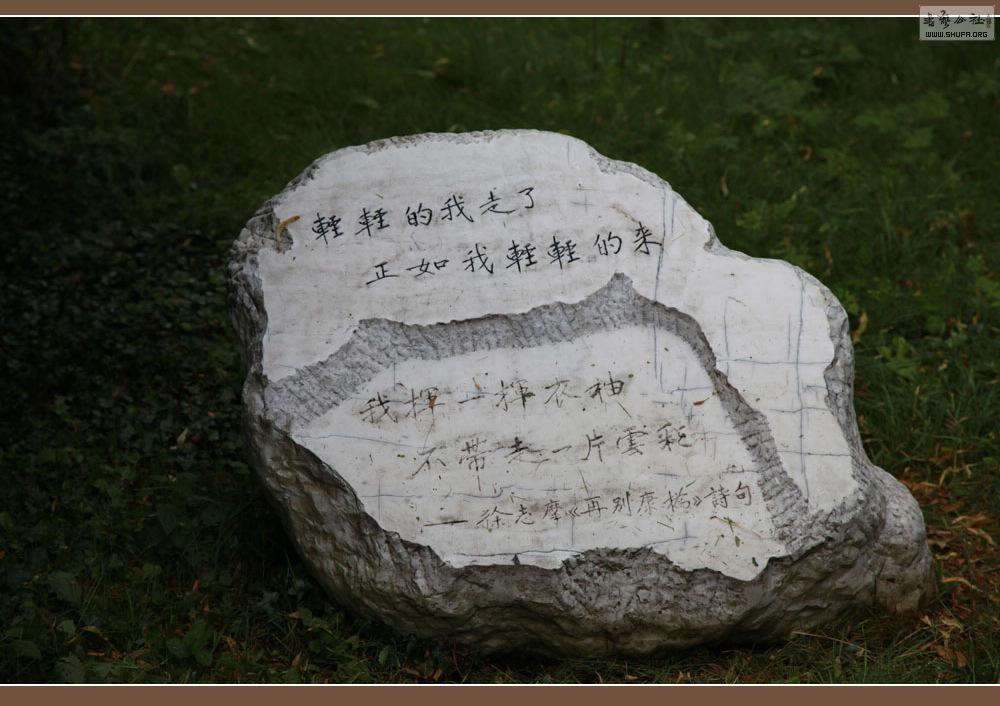 書藝公社
WWW.SHUFA.ORG
輕輕的我走了
正如我輕輕的来
我揮一揮衣袖
不带走一片雲彩
—徐志摩《再别康橋》詩句